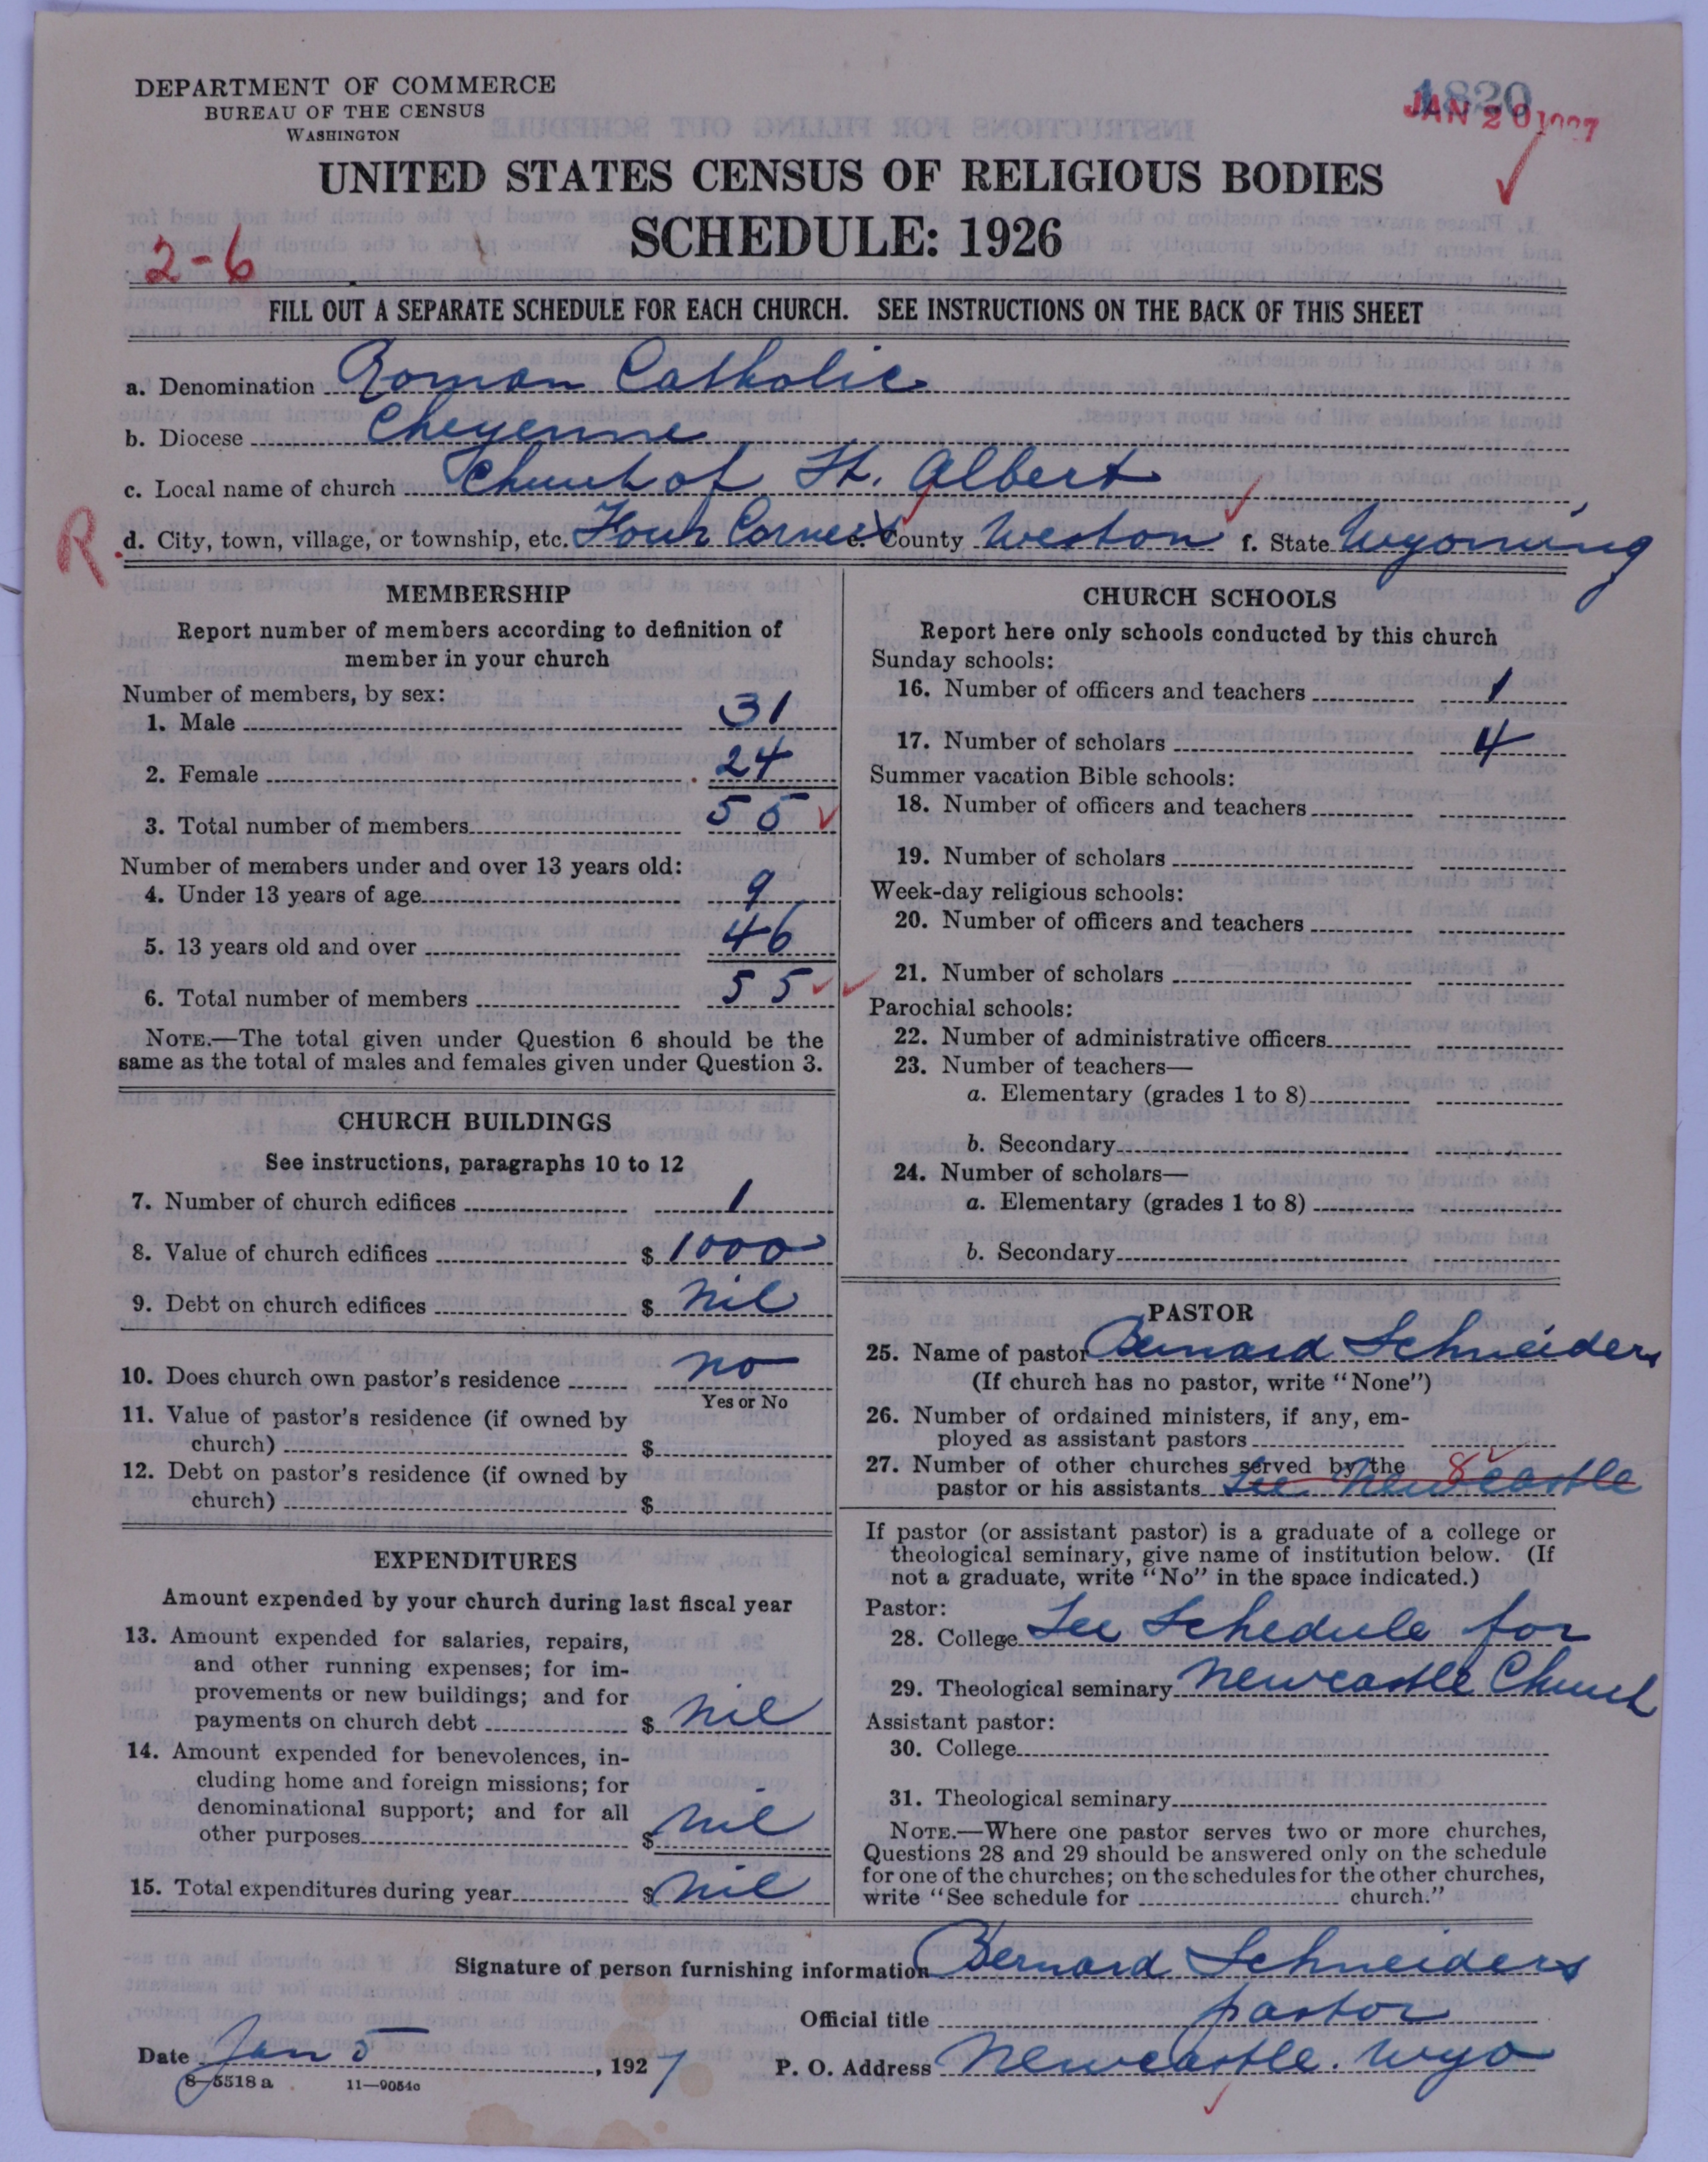 DEPARTMENT OF COMMERCE
BUREAU OF THE CENSUS
WASHINGTON
1820
JAN 20 1927
UNITED STATES CENSUS OF RELIGIOUS BODIES
SCHEDULE: 1926
2-6
FILL OUT A SEPARATE SCHEDULE FOR EACH CHURCH. SEE INSTRUCTIONS ON THE BACK OF THIS SHEET
a. Denomination Roman Catholic
b. Diocese Cheyenne
c. Local name of church Church of St. Albert
R d. City, town, village, or township, etc. Four Corners e. County Weston f. State Wyoming
MEMBERSHIP
Report number of members according to definition of
member in your church
Number of members, by sex:
1. Male 31
2. Female 24
3. Total number of members 55
Number of members under and over 13 years old:
4. Under 13 years of age 9
5. 13 years old and over 46
6. Total number of members 55
NOTE.—The total given under Question 6 should be the
same as the total of males and females given under Question 3.
CHURCH BUILDINGS
See instructions, paragraphs 10 to 12
7. Number of church edifices 1
8. Value of church edifices $ 1000
9. Debt on church edifices $ nil
10. Does church own pastor's residence no
Yes or No
11. Value of pastor's residence (if owned by
church) $
12. Debt on pastor's residence (if owned by
church) $
EXPENDITURES
Amount expended by your church during last fiscal year
13. Amount expended for salaries, repairs,
and other running expenses; for im-
provements or new buildings; and for
payments on church debt $ nil
14. Amount expended for benevolences, in-
cluding home and foreign missions; for
denominational support; and for all
other purposes $ nil
15. Total expenditures during year $ nil
CHURCH SCHOOLS
Report here only schools conducted by this church
Sunday schools:
16. Number of officers and teachers 1
17. Number of scholars 4
Summer vacation Bible schools:
18. Number of officers and teachers
19. Number of scholars
Week-day religious schools:
20. Number of officers and teachers
21. Number of scholars
Parochial schools:
22. Number of administrative officers
23. Number of teachers—
a. Elementary (grades 1 to 8)
b. Secondary
24. Number of scholars—
a. Elementary (grades 1 to 8)
b. Secondary
PASTOR
25. Name of pastor Bernard Schneiders
(If church has no pastor, write "None")
26. Number of ordained ministers, if any, em-
ployed as assistant pastors
27. Number of other churches served by the 8
pastor or his assistants See Newcastle
If pastor (or assistant pastor) is a graduate of a college or
theological seminary, give name of institution below. (If
not a graduate, write "No" in the space indicated.)
Pastor:
28. College See Schedule for
29. Theological seminary Newcastle Church
Assistant pastor:
30. College
31. Theological seminary
NOTE.—Where one pastor serves two or more churches,
Questions 28 and 29 should be answered only on the schedule
for one of the churches; on the schedules for the other churches,
write "See schedule for church."
Signature of person furnishing information Bernard Schneiders
Official title pastor
Date Jan 5, 1927 P. O. Address Newcastle. Wyo
8-5518 a 11-9054c